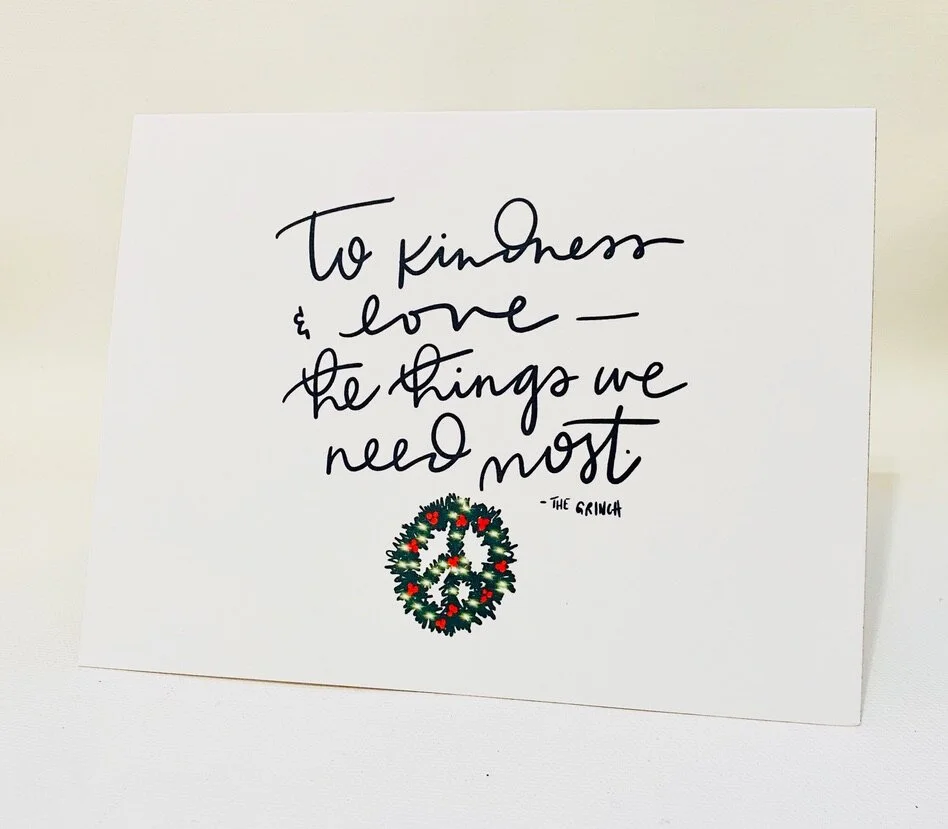 To kindness
& love —
the things we
need most.
- THE GRINCH